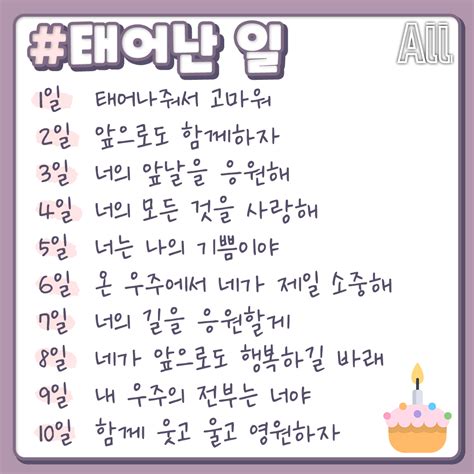 #태어난 일
All
1일 태어나줘서 고마워
2일 앞으로도 함께하자
3일 너의 앞날을 응원해
4일 너의 모든 것을 사랑해
5일 너는 나의 기쁨이야
6일 온 우주에서 네가 제일 소중해
7일 너의 길을 응원할게
8일 네가 앞으로도 행복하길 바래
9일 내 우주의 전부는 너야
10일 함께 웃고 울고 영원하자